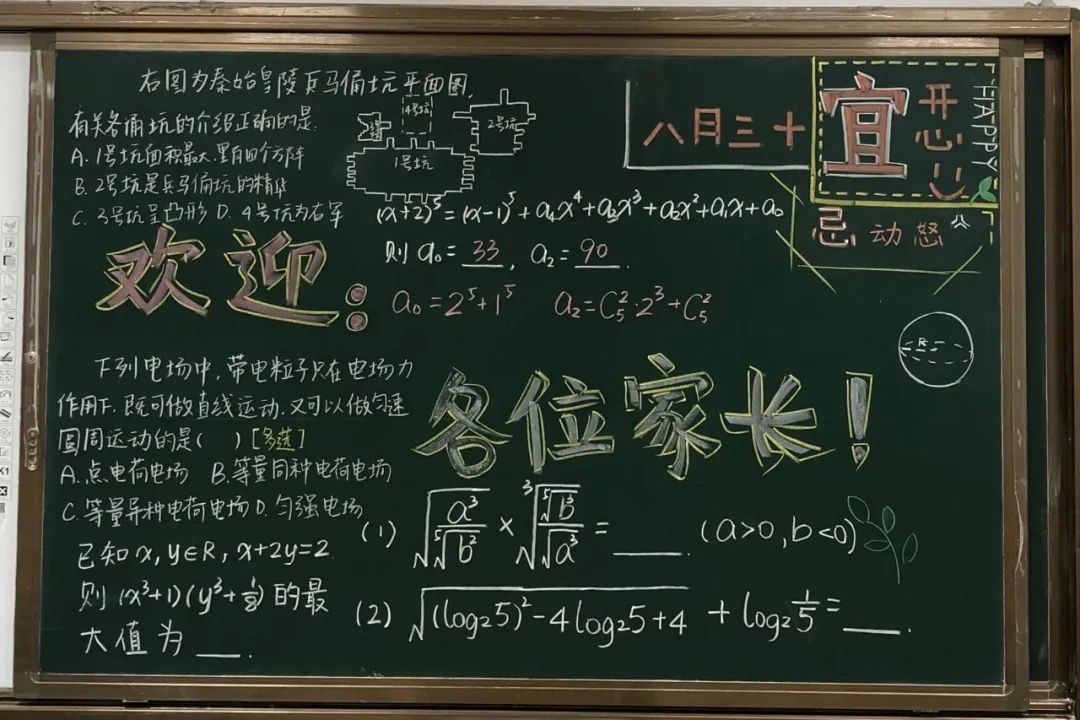 右图为秦始皇陵兵马俑坑平面图,
有关各俑坑的介绍正确的是:
A. 1号坑面积最大.里有四个方阵
B. 2号坑是兵马俑坑的精华
C. 3号坑呈凸形 D. 4号坑为右军
4号坑
2号坑
1号坑
(x+2)⁵=(x-1)⁵+a₄x⁴+a₃x³+a₂x²+a₁x+a₀
则 a₀= 33 , a₂= 90 .
a₀=2⁵+1⁵ a₂=C₅²·2³+C₅²
八月三十
宜
开心
HAPPY
忌 动怒
欢迎:
各位家长!
R
下列电场中,带电粒子只在电场力
作用下,既可做直线运动,又可以做匀速
圆周运动的是( ) [多选]
A. 点电荷电场 B. 等量同种电荷电场
C. 等量异种电荷电场 D. 匀强电场
已知 x, y∈R, x+2y=2
则 (x³+1)(y³+1/8) 的最
大值为 __ .
(1) √(a³/⁵√b³) × ³√(⁵√b³/√a³) = ___ . (a>0, b<0)
(2) √((log₂5)²-4log₂5+4) + log₂1/5 = ___ .